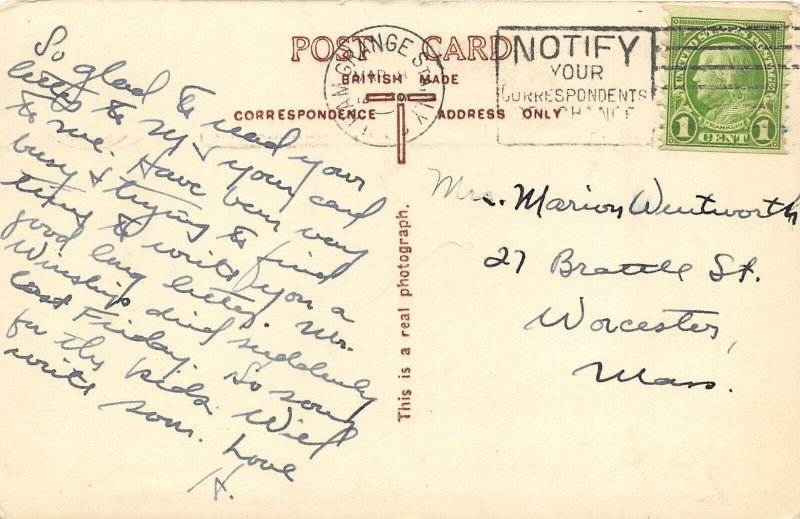 POST CARD
BRITISH MADE
CORRESPONDENCE ADDRESS ONLY
GRANGE N.Y.
NOTIFY
YOUR
CORRESPONDENTS
CHANGE
UNITED STATES POSTAGE
FRANKLIN
1 CENT 1
So glad to read your
letter to NY & your card
to me. Have been very
busy & trying to find
time to write you a
good long letter. Mr.
Winship died suddenly
last Friday. So sorry
for the kids. Will
write soon. Love
H.
This is a real photograph.
Mrs. Marion Wentworth
27 Brattle St.
Worcester,
Mass.